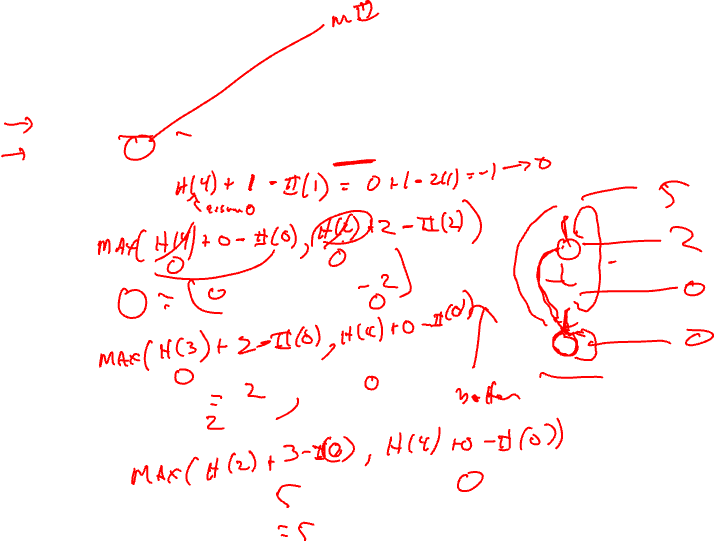 H(4) + 1 - II(1) = 0 + 1 - 2(1) = -1 → 0
MAX( H(4) + 0 - II(0), H(4) + 2 - II(2) )
0 0
0 = 0 - 2
0
MAX( H(3) + 2 - II(0), H(4) + 0 - II(0)
0 0
= 2
2
MAX( H(2) + 3 - II(0), H(4) + 0 - II(0))
5 0
= 5
5
2
0
0